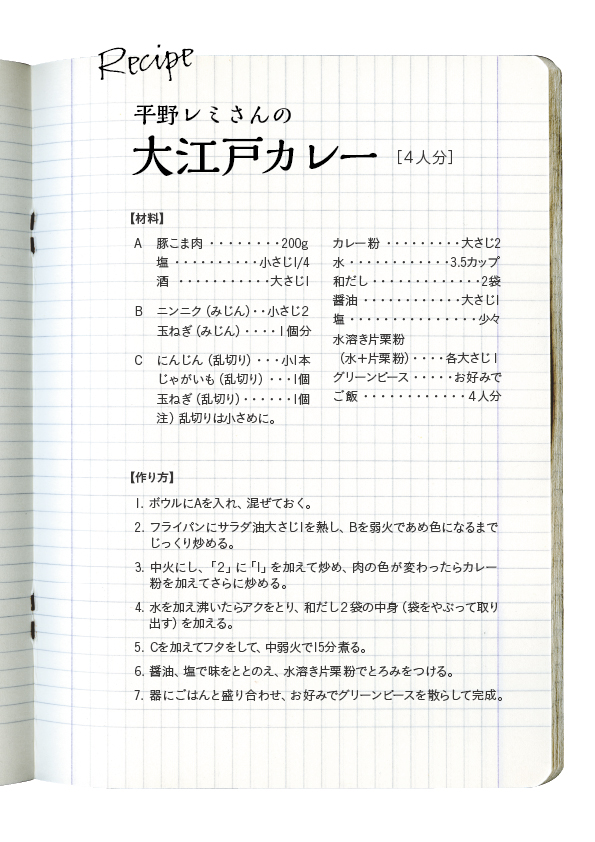 Recipe
平野レミさんの
大江戸カレー [4人分]
【材料】
A 豚こま肉 ・・・・・・・・200g
塩 ・・・・・・・・・・小さじ1/4
酒 ・・・・・・・・・・・大さじ1
B ニンニク(みじん)・・小さじ2
玉ねぎ(みじん)・・・・1個分
C にんじん(乱切り)・・・小1本
じゃがいも(乱切り)・・・1個
玉ねぎ(乱切り)・・・・・・1個
注)乱切りは小さめに。
カレー粉 ・・・・・・・・・大さじ2
水・・・・・・・・・・・・3.5カップ
和だし・・・・・・・・・・・・・2袋
醤油・・・・・・・・・・・・大さじ1
塩・・・・・・・・・・・・・・・少々
水溶き片栗粉
(水+片栗粉)・・・・各大さじ1
グリーンピース・・・・・お好みで
ご飯・・・・・・・・・・・・4人分
【作り方】
1. ボウルにAを入れ、混ぜておく。
2. フライパンにサラダ油大さじ1を熱し、Bを弱火であめ色になるまで
じっくり炒める。
3. 中火にし、「2」に「1」を加えて炒め、肉の色が変わったらカレー
粉を加えてさらに炒める。
4. 水を加え沸いたらアクをとり、和だし2袋の中身(袋をやぶって取り
出す)を加える。
5. Cを加えてフタをして、中弱火で15分煮る。
6. 醤油、塩で味をととのえ、水溶き片栗粉でとろみをつける。
7. 器にごはんと盛り合わせ、お好みでグリーンピースを散らして完成。